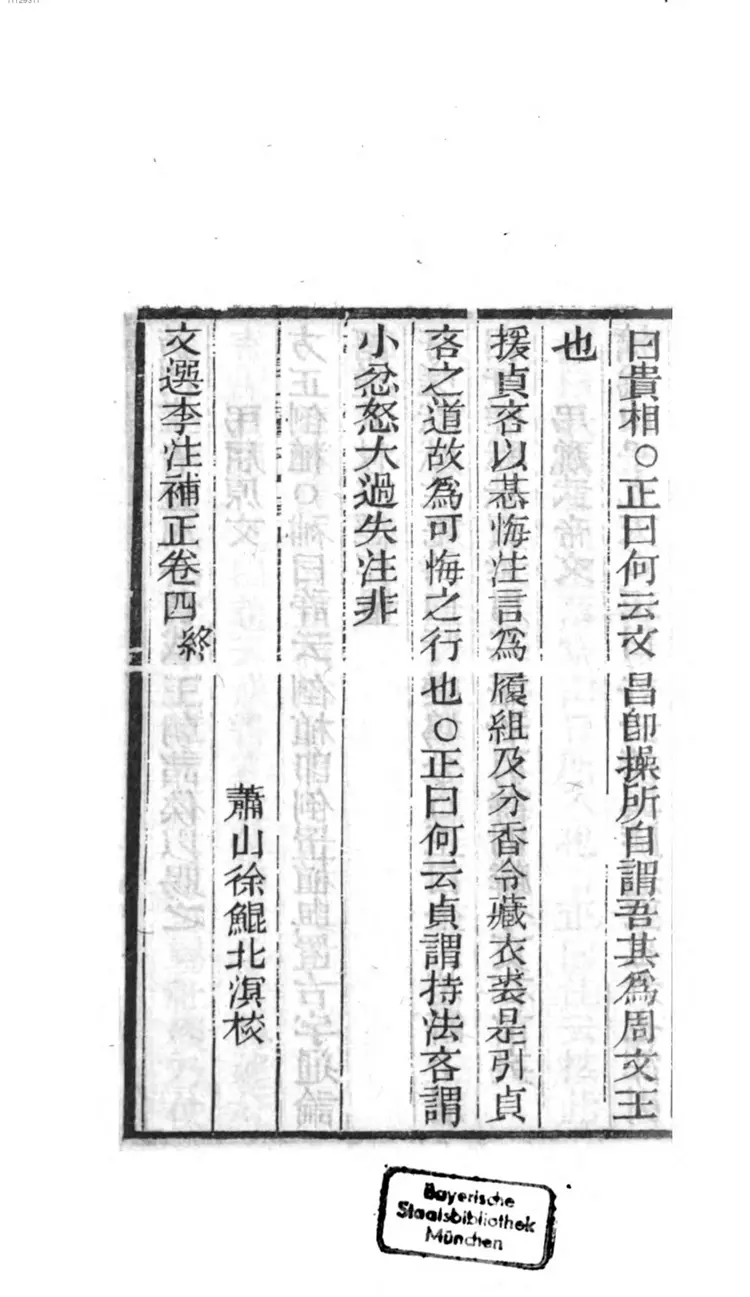 曰貴相○正曰何云文昌卽操所自謂吾其爲周文王
也
援貞吝以惎悔注言爲履組及分香令藏衣裘是引貞
吝之道故爲可悔之行也○正曰何云貞謂持法吝謂
小忿怒大過失注非
蕭山徐鯤北溟校
文選李注補正卷四終
Bayerische
Staatsbibliothek
München